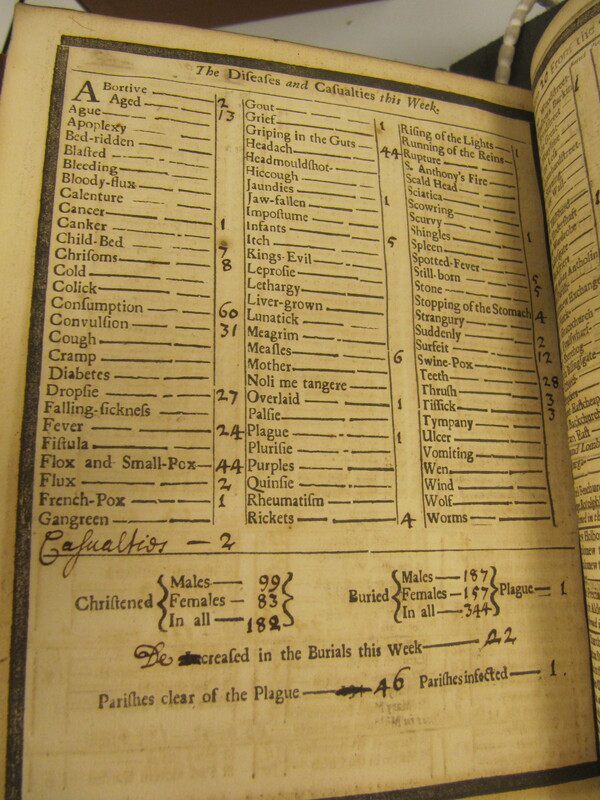 The Diſeaſes and Caſualties this Week.
ABortive 2
Aged 13
Ague
Apoplexy
Bed-ridden
Blaſted
Bleeding
Bloody-flux
Calenture
Cancer
Canker 1
Child-Bed 7
Chriſoms 8
Cold
Colick
Conſumption 60
Convulſion 31
Cough
Cramp
Diabetes
Dropſie 27
Falling-ſickneſs
Fever 24
Fiſtula
Flox and Small-Pox 44
Flux 2
French-Pox 1
Gangreen
Caſualties — 2
Gout
Grief 1
Griping in the Guts 44
Headach
Headmouldſhot
Hiccough
Jaundies 1
Jaw-fallen
Impoſtume
Infants 5
Itch
Kings-Evil
Leproſie
Lethargy
Liver-grown
Lunatick
Meagrim
Meaſles 6
Mother
Noli me tangere
Overlaid 1
Palſie
Plague 1
Pluriſie
Purples
Quinſie
Rheumatiſm
Rickets 4
Riſing of the Lights 1
Running of the Reins
Rupture
S. Anthony's Fire
Scald Head
Sciatica
Scowring
Scurvy
Shingles 1
Spleen
Spotted-Fever
Still-born 5
Stone 5
Stopping of the Stomach 4
Strangury
Suddenly 2
Surfeit 12
Swine-Pox
Teeth 28
Thruſh 3
Tiſſick 3
Tympany
Ulcer
Vomiting
Wen
Wind
Wolf
Worms
Chriſtened
Males — 99
Females — 83
In all — 182
Buried
Males — 187
Females — 157
In all — 344
Plague — 1
De creaſed in the Burials this Week — 22
Pariſhes clear of the Plague — 46 Pariſhes infected — 1.